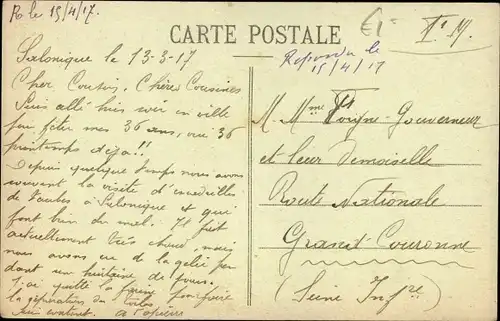 R le 15/4/17.
CARTE POSTALE
€1-
F. M.
Répondu le
15/4/17
Salonique le 13-3-17
Cher Cousin, Chères Cousines
Suis allé hier soir en ville
pour fêter mes 36 ans, oui 36
printemps déja!!
Depuis quelque temps nous avons
souvent la visite d'escadrilles
de Taubes à Salonique et qui
font bien du mal. Il fait
actuellement très chaud, mais
nous avons eu de la gelée
dont une huitaine de jours.
J'ai quitté la
la réparation des toiles
M. Mme Poigne-Gouverneur
et leur Demoiselle
Route Nationale
Grand Couronne
(Seine Infre)